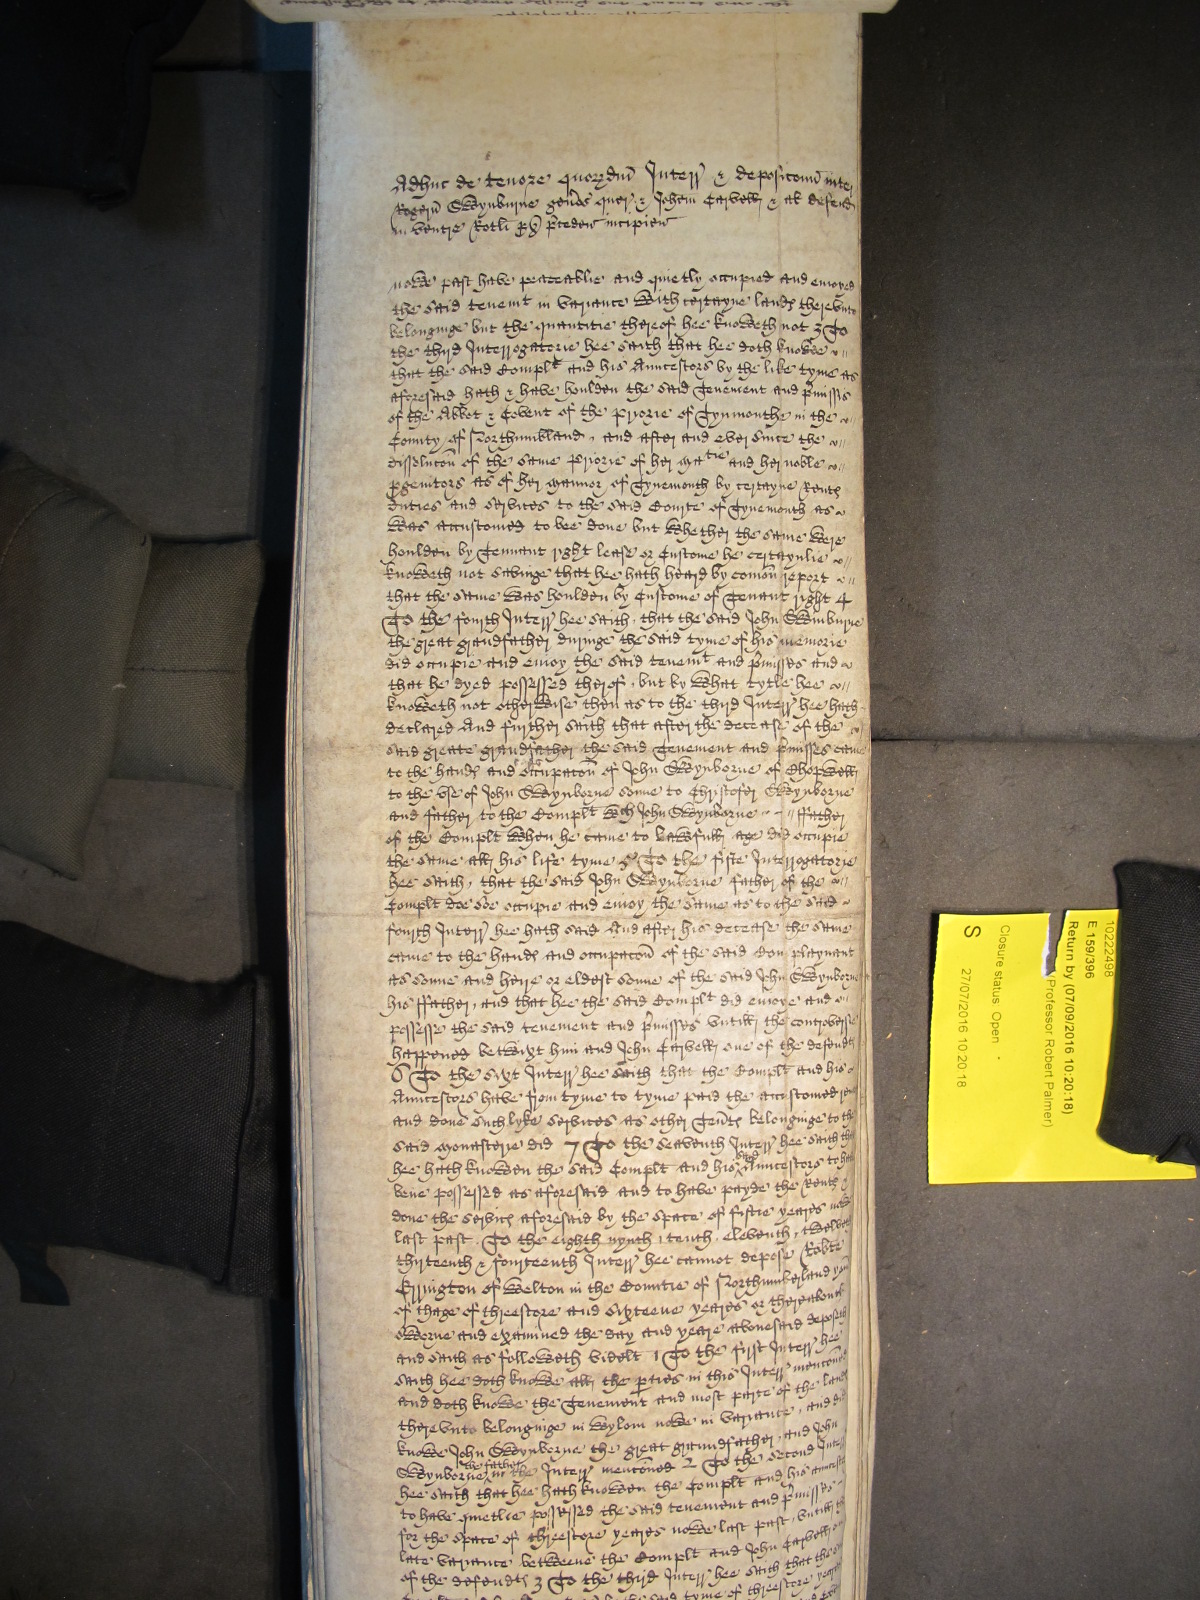 Adhuc de tenore quorundm Interr & deposiconu inter
Rogeru Swynburne genos quer & Johem Carvell & al defend
in ventre Rotli px preceden incipien
nowe past have peaceablie and quietly occupied and enioyed
the said tenemt in variance with certayne lands therevnto
belonginge but the quantitie thereof hee knoweth not 3 To
the third Interrogatorie hee saith that hee doth knowe
that the said Complt and his Anncestors by the like tyme as
aforesaid hath & have houlden the said Tenement and pmisses
of the Abbot & Covent of the Priorie of Tynmonthe in the
County of Northumbland, and after and ever since the
dissolucon of the same Priorie of her Matie and her noble
pgenitors as of her Mannor of Tynemonth by certayne Rents
duties and services to the said Courte of Tynemonth as
was accustomed to bee done but whether the same were
houlden by Tennant right lease or Custome he certaynlie
knoweth not savinge that hee hath heard by comon report
that the same was houlden by Custome of Tenant right 4
To the fourth Interr hee saith, that the said John Swinburne
the great grandfather duringe the said tyme of his memorie
did occupie and enioy the said tenemt and pmisses and
that he dyed possessed therof, but by what tytle hee
knoweth not otherwise then as to the third Interr hee hath
declared And further saith that after the decease of the
said greate grandfather the said Tenement and pmisses came
to the hands and occupacon of John Swynborne of Chopwell
to the vse of John Swynborne sonne to Christofer Swynborne
and father to the Complt wch John Swynborne ffather
of the Complt when he came to lawfull age did occupie
the same all his life tyme 5 To the fifte Interrogatorie
hee saith, that the said John Swynborne father of the
Complt did soe occupie and enioy the same as to the said
fourth Interr hee hath said And after his decease the same
came to the hands and occupacon of the said Complaynant
as sonne and heire or eldest sonne of the said John Swynborne
his ffather, and that hee the said Complt did enioye and
possesse the said tenement and pmisses vntill the controversie
happened betwixt him and John Carvell one of the defendts
6 To the sixt Interr hee saith that the Complt and his
Anncestors have from tyme to tyme paid the accustomed
and done such lyke services as other Tents belonginge to the
said Monasterie did 7 To the seaventh Interr hee saith that
hee hath knowen the said Complt and his said Anncestors to ha
vene possessed as aforesaid and to have payde the Rents &
done the servics aforesaid by the space of fiftie yeares nowe
last past. To the eighth nynth, tenth, eleventh, twelveth
thirteenth & fourteenth Interr hee cannot depose Robte
Errington of Welton in the Countie of Northumberland
of thage of threescore and sixteene yeares or therabouts
sworne and examined the day and yeare abovesaid deposeth
and saith as followeth vidzlt 1 To the first Interr hee
saith hee doth knowe all the pties in this Interr menconed
and doth knowe the Tenement and most parte of the lands
therevnto belonginge in Wylom nowe in variance, and did
knowe John Swynborne the great grandfather, and John
Swynborne the father in the Interr menconed 2 To the second Interr
hee saith that hee hath knowen the Complt and his ancestors
to have quietlie possessed the said tenement and pmisses
for the space of threescore yeares nowe last past, vntill the
late variance betweene the Complt and John Carvell
of the defendts 3 To the third Interr hee saith that the
tyme of threescore yeares
10222498
E 159/396
Return by (07/09/2016 10:20:18)
(Professor Robert Palmer)
Closure status Open
27/07/2016 10:20:18
S